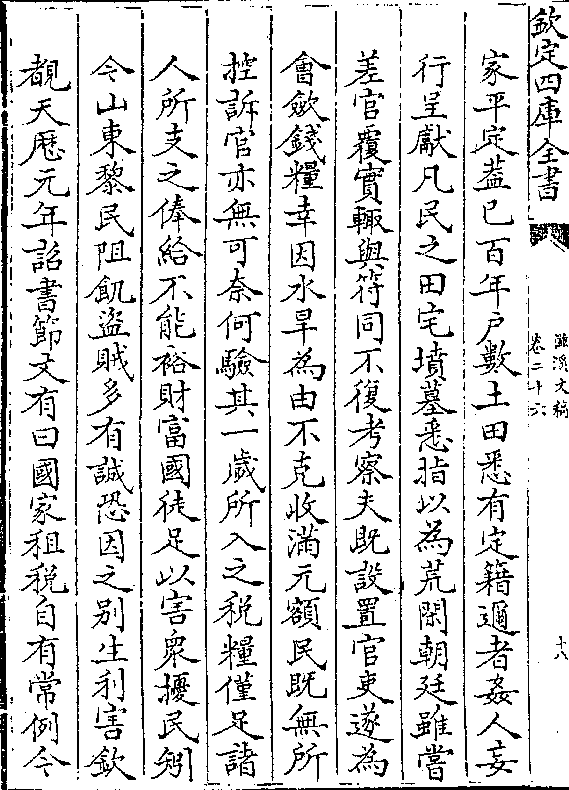 欽定四庫全書
滋溪文稿
卷二十六
十八
家平定蓋已百年户數土田悉有定籍邇者姦人妄
行呈獻凡民之田宅墳墓悉指以為荒閑朝廷雖嘗
差官覆實輙與符同不復考察夫既設置官吏遂為
會斂錢糧幸因水旱為由不克收滿元額民既無所
控訴官亦無可奈何驗其一歲所入之稅糧僅足諸
人所支之俸給不能裕財富國徒足以害衆擾民矧
今山東黎民阻飢盗賊多有誠恐因之别生利害欽
覩天厯元年詔書節文有曰國家租稅自有常例今